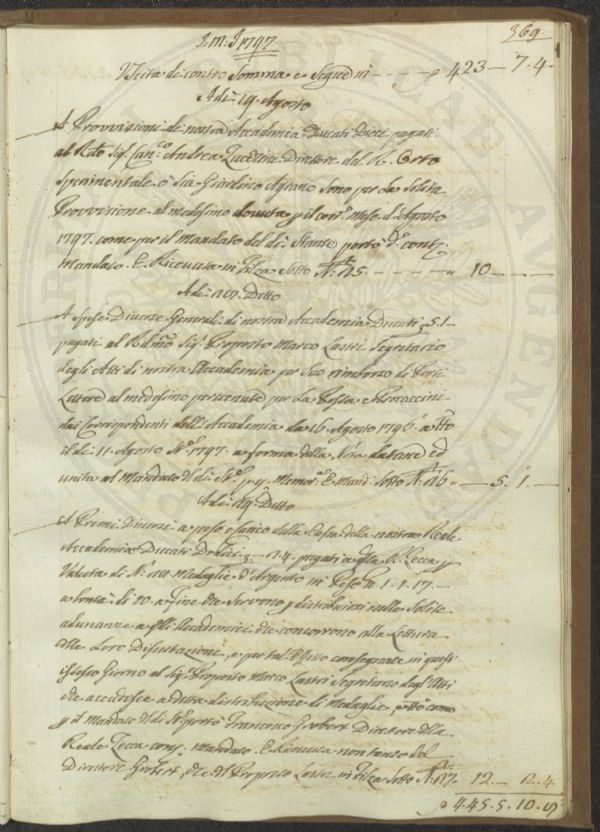 J.M.J 1797
369
Uscita di contro Somma e Segue in - - - - 423 - 7 - 4
Adi 19 Agosto
A Provvisioni di nostra Accademia Ducati Dieci pagati
al Sig. Can.co Andrea Zucchini Direttore del R. Orto
Sperimentale o Sia Giardino Agrario sono per la Solita
Provvisione al medesimo dovuta il corr. Mese d'Agosto
1797. come per il Mandato del dì Stante
Mandato. E Ricevuta in Filza Sotto N. 115 - - - - - 10 - - -
Adi Ditto
A Spese Diverse Generali di nostra Accademia Ducati 5.1 -
pagati al Sig. Proposto Marco Lastri Segretario
degli Atti di nostra Accademia per Suo rimborso di
Lettere al medesimo pervenute per la Posta e Procaccini
dai Corrispondenti dell'Accademia da 16 Agosto 1796 a tutto
il dì 11 Agosto 1797. a forma della Nota datane ed
unita al Mandato Sotto N. 116 - 5. 1. -
Adi Ditto
A Premi Diversi a peso e carico della Cassa della nostra Reale
Accademia Ducati Dodici 12.4 pagati a Zecca
Valuta di Medaglie d'Argento in Peso 1. 1. 17. -
a bontà di fine che servono distribuirsi nelle Solite
adunanze a gli Accademici che concorrono alla Lettura
delle Loro Dissertazioni, e per tal Effetto consegnate in questo
istesso Giorno al Sig. Proposto Marco Lastri Segretario degl'Atti
che accudisce a detta distribuzione di Medaglie come
il Mandato Francesco Grobert Direttore della
Reale Zecca Mandato. E Ricevuta non tanto del
Direttore Grobert, che del Proposto Lastri in Filza Sotto N. 117. - 12 - 2.4
445. 5. 10.